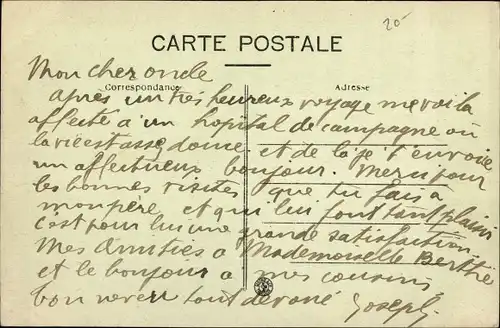 20-
CARTE POSTALE
Correspondance
Adresse
Mon cher oncle
après un très heureux voyage me voila
affecté a un hopital de campagne où
la vie est assez douce et de là je t'envoie
un affectueux bonjour. Merci pour
les bonnes visites que tu fais a
mon père et qui lui font tant plaisir
c'est pour lui une grande satisfaction
Mes amitiés a Mademoiselle Berthe
et le bonjour a mes cousins
ton neveu tout dévoué Joseph